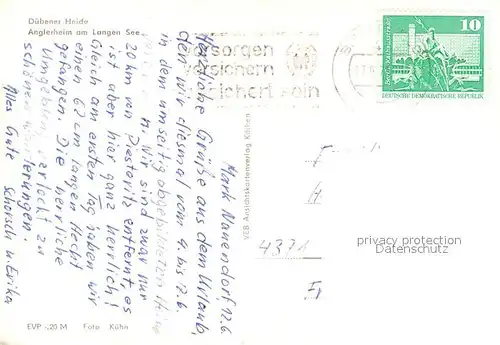 Dübener Heide
Anglerheim am Langen See
Mark Nauendorf, 12.6.
Herzliche Grüße aus dem Urlaub,
den wir diesmal vom 4. bis 12.6.
in dem umseitig abgebildeten
n. Wir sind zwar nur
20 km von entfernt, es
ist aber hier ganz herrlich!
Gleich am ersten Tag haben wir
einen 62 cm langen Hecht
gefangen. Die herrliche
Umgebung verlockt zu
schönen Wanderungen.
Alles Gute
Schorsch u. Erika
EVP -,20 M Foto Kühn
VEB Ansichtskartenverlag Köthen
vorsorgen
versichern
sein
10
DEUTSCHE DEMOKRATISCHE REPUBLIK
4371
privacy protection
Datenschutz